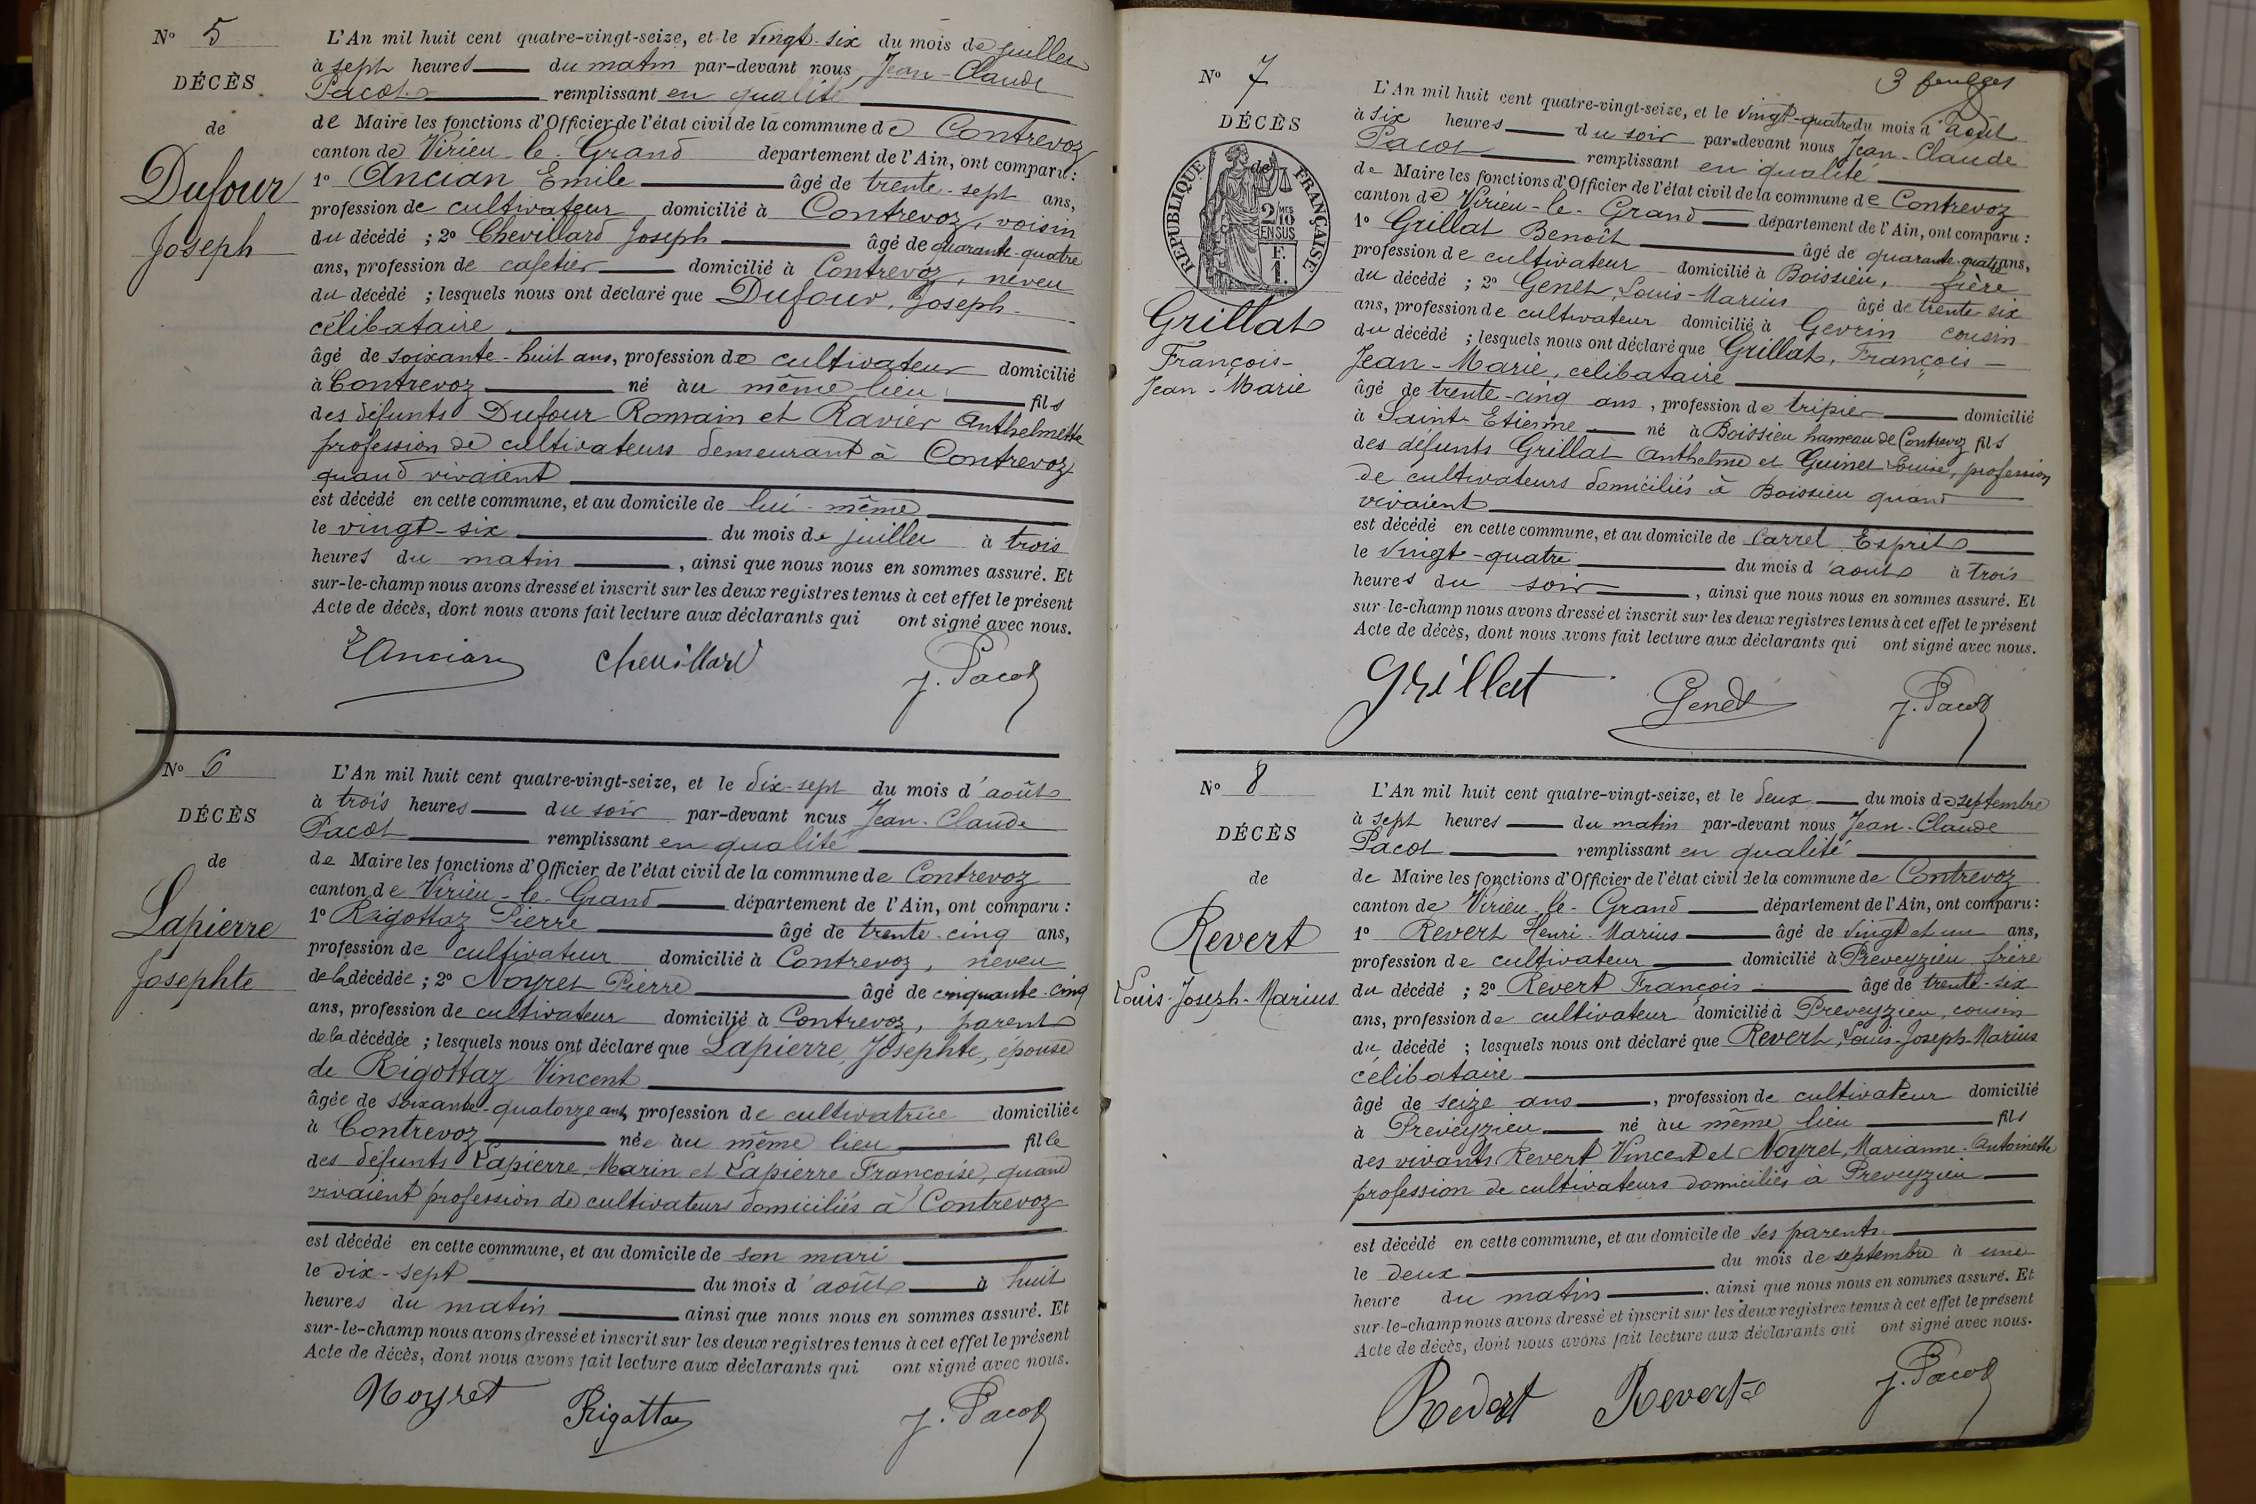 N° 5
DÉCÈS
de
Dufour
Joseph
L'An mil huit cent quatre-vingt-seize, et le vingt-six du mois de juillet
à sept heures du matin par-devant nous Jean-Claude
Pacot remplissant en qualité
de Maire les fonctions d'Officier de l'état civil de la commune de Contrevoz
canton de Virieu-le-Grand département de l'Ain, ont comparu :
1° Ancian Emile âgé de trente-sept ans,
profession de cultivateur domicilié à Contrevoz, voisin
du décédé ; 2° Chevillard Joseph âgé de quarante-quatre
ans, profession de cafetier domicilié à Contrevoz, neveu
du décédé ; lesquels nous ont déclaré que Dufour, Joseph
célibataire
âgé de soixante-huit ans, profession de cultivateur domicilié
à Contrevoz né au même lieu fils
des défunts Dufour Romain et Ravier Anthelmette
profession de cultivateurs demeurant à Contrevoz
quand vivaient
est décédé en cette commune, et au domicile de lui-même
le vingt-six du mois de juillet à trois
heures du matin, ainsi que nous nous en sommes assuré. Et
sur-le-champ nous avons dressé et inscrit sur les deux registres tenus à cet effet le présent
Acte de décès, dont nous avons fait lecture aux déclarants qui ont signé avec nous.
E Ancian Chevillard J. Pacot
N° 6
DÉCÈS
de
Lapierre
Josephte
L'An mil huit cent quatre-vingt-seize, et le dix-sept du mois d'août
à trois heures du soir par-devant nous Jean-Claude
Pacot remplissant en qualité
de Maire les fonctions d'Officier de l'état civil de la commune de Contrevoz
canton de Virieu-le-Grand département de l'Ain, ont comparu :
1° Rigottaz Pierre âgé de trente-cinq ans,
profession de cultivateur domicilié à Contrevoz, neveu
de la décédée ; 2° Noyret Pierre âgé de cinquante-cinq
ans, profession de cultivateur domicilié à Contrevoz, parent
de la décédée ; lesquels nous ont déclaré que Lapierre, Josephte, épouse
de Rigottaz Vincent
âgée de soixante-quatorze ans, profession de cultivatrice domiciliée
à Contrevoz née au même lieu fille
des défunts Lapierre, Marin et Lapierre Françoise, quand
vivaient profession de cultivateurs domiciliés à Contrevoz
est décédé en cette commune, et au domicile de son mari
le dix-sept du mois d'août à huit
heures du matin ainsi que nous nous en sommes assuré. Et
sur-le-champ nous avons dressé et inscrit sur les deux registres tenus à cet effet le présent
Acte de décès, dont nous avons fait lecture aux déclarants qui ont signé avec nous.
Noyret Rigottaz J. Pacot
3 feuilles
N° 7
DÉCÈS
de
RÉPUBLIQUE FRANÇAISE
2/10 MES
EN SUS
F.
1.
Grillat
François-
Jean-Marie
L'An mil huit cent quatre-vingt-seize, et le vingt-quatre du mois d'août
à six heures du soir par-devant nous Jean-Claude
Pacot remplissant en qualité
de Maire les fonctions d'Officier de l'état civil de la commune de Contrevoz
canton de Virieu-le-Grand département de l'Ain, ont comparu :
1° Grillat Benoît âgé de quarante-quatre ans,
profession de cultivateur domicilié à Boissieu, frère
du décédé ; 2° Genet, Louis-Marius âgé de trente six
ans, profession de cultivateur domicilié à Gevrin cousin
du décédé ; lesquels nous ont déclaré que Grillat, François-
Jean-Marie, célibataire
âgé de trente-cinq ans, profession de tripier domicilié
à Saint-Etienne né à Boissieu hameau de Contrevoz fils
des défunts Grillat Anthelme et Guinet Louise, profession
de cultivateurs domiciliés à Boissieu quand
vivaient
est décédé en cette commune, et au domicile de Carrel Esprit
le vingt-quatre du mois d'août à trois
heures du soir, ainsi que nous nous en sommes assuré. Et
sur-le-champ nous avons dressé et inscrit sur les deux registres tenus à cet effet le présent
Acte de décès, dont nous avons fait lecture aux déclarants qui ont signé avec nous.
Grillat Genet J. Pacot
N° 8
DÉCÈS
de
Revert
Louis-Joseph-Marius
L'An mil huit cent quatre-vingt-seize, et le deux du mois de septembre
à sept heures du matin par-devant nous Jean-Claude
Pacot remplissant en qualité
de Maire les fonctions d'Officier de l'état civil de la commune de Contrevoz
canton de Virieu-le-Grand département de l'Ain, ont comparu :
1° Revert Henri-Marius âgé de vingt et un ans,
profession de cultivateur domicilié à Preveyzieu frère
du décédé ; 2° Revert François âgé de trente-six
ans, profession de cultivateur domicilié à Preveyzieu, cousin
du décédé ; lesquels nous ont déclaré que Revert, Louis-Joseph-Marius
célibataire
âgé de seize ans, profession de cultivateur domicilié
à Preveyzieu né au même lieu fils
des vivants Revert Vincent et Noyret, Marianne-Antoinette
profession de cultivateurs domiciliés à Preveyzieu
est décédé en cette commune, et au domicile de ses parents
le deux du mois de septembre à une
heure du matin ainsi que nous nous en sommes assuré. Et
sur-le-champ nous avons dressé et inscrit sur les deux registres tenus à cet effet le présent
Acte de décès, dont nous avons fait lecture aux déclarants qui ont signé avec nous.
Revert Revert J. Pacot